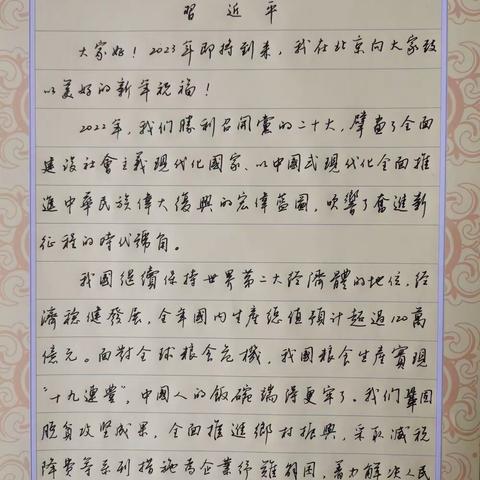 習近平
大家好！2023年即將到来，我在北京向大家致
以美好的新年祝福！
2022年，我们勝利召開黨的二十大，擘畫了全面
建设社會主義現代化國家、以中國式現代化全面推
進中華民族偉大復興的宏偉藍圖，吹響了奮進新
征程的時代號角。
我國继續保持世界第二大经濟體的地位，经
濟穩健發展，全年國内生產總值預计超過120萬
億元。面對全球粮食危機，我國粮食生產實現
“十九連豐”，中國人的飯碗端得更牢了。我们鞏固
脱貧攻坚成果，全面推進鄉村振興，采取减税
降费等系列措施為企業纾難解困，着力解决人民